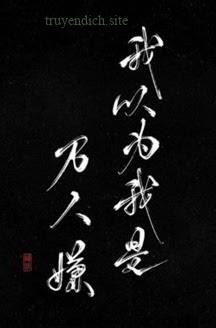 truyendich.site
我以为我是
万人嫌